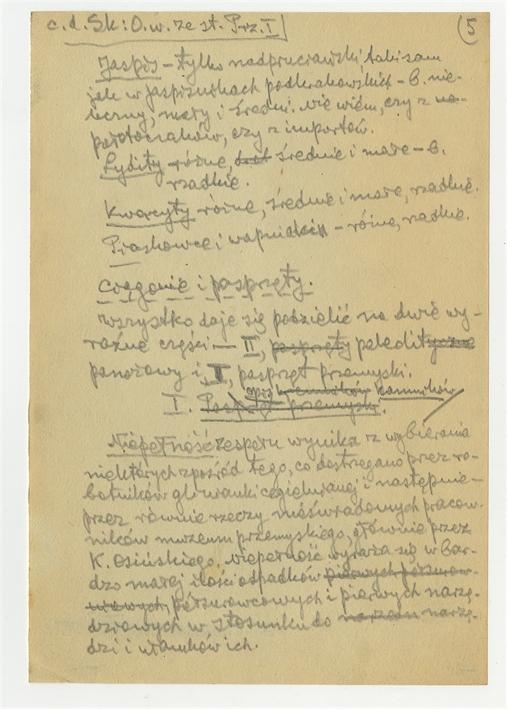 c.d. Sk: O.w. ze st. Prz. I
(5
Jaspis – tylko nadprucrawski, taki sam
jak w jaspiskach podkrakowskich – b. nie-
liczny, mały i średni. Nie wiem, czy z na-
potoczaków, czy z importów.
Lydity różne, średnie i małe – b.
rzadkie.
Kwarcyty różne, średnie i małe, rzadkie.
Piaskowce i wapniaki – różne, rzadkie.
Ciągnie i posprzęty.
Wszystko daje się podzielić na dwie wy-
raźne części – II, posprzęty paleolityczne
panożowy i I, posprzęt przemyski.
I. Posprzęt przemyski. kamników
Niepełność zespołu wynika z wybierania
niektórych spośród tego, co dostrzegano przez ro-
botników glinianki cegielnianej i następnie –
przez równie rzeczy nieświadomych pracow-
ników muzeum przemyskiego, głównie przez
K. Osińskiego. Niepełność wyraża się w bar-
dzo małej ilości odpadków pierwszych półsurow-
cowych, półsurowcowych i pierwych narzę-
dziowych w stosunku do narzędzi narzę-
dzi i ułamków ich.